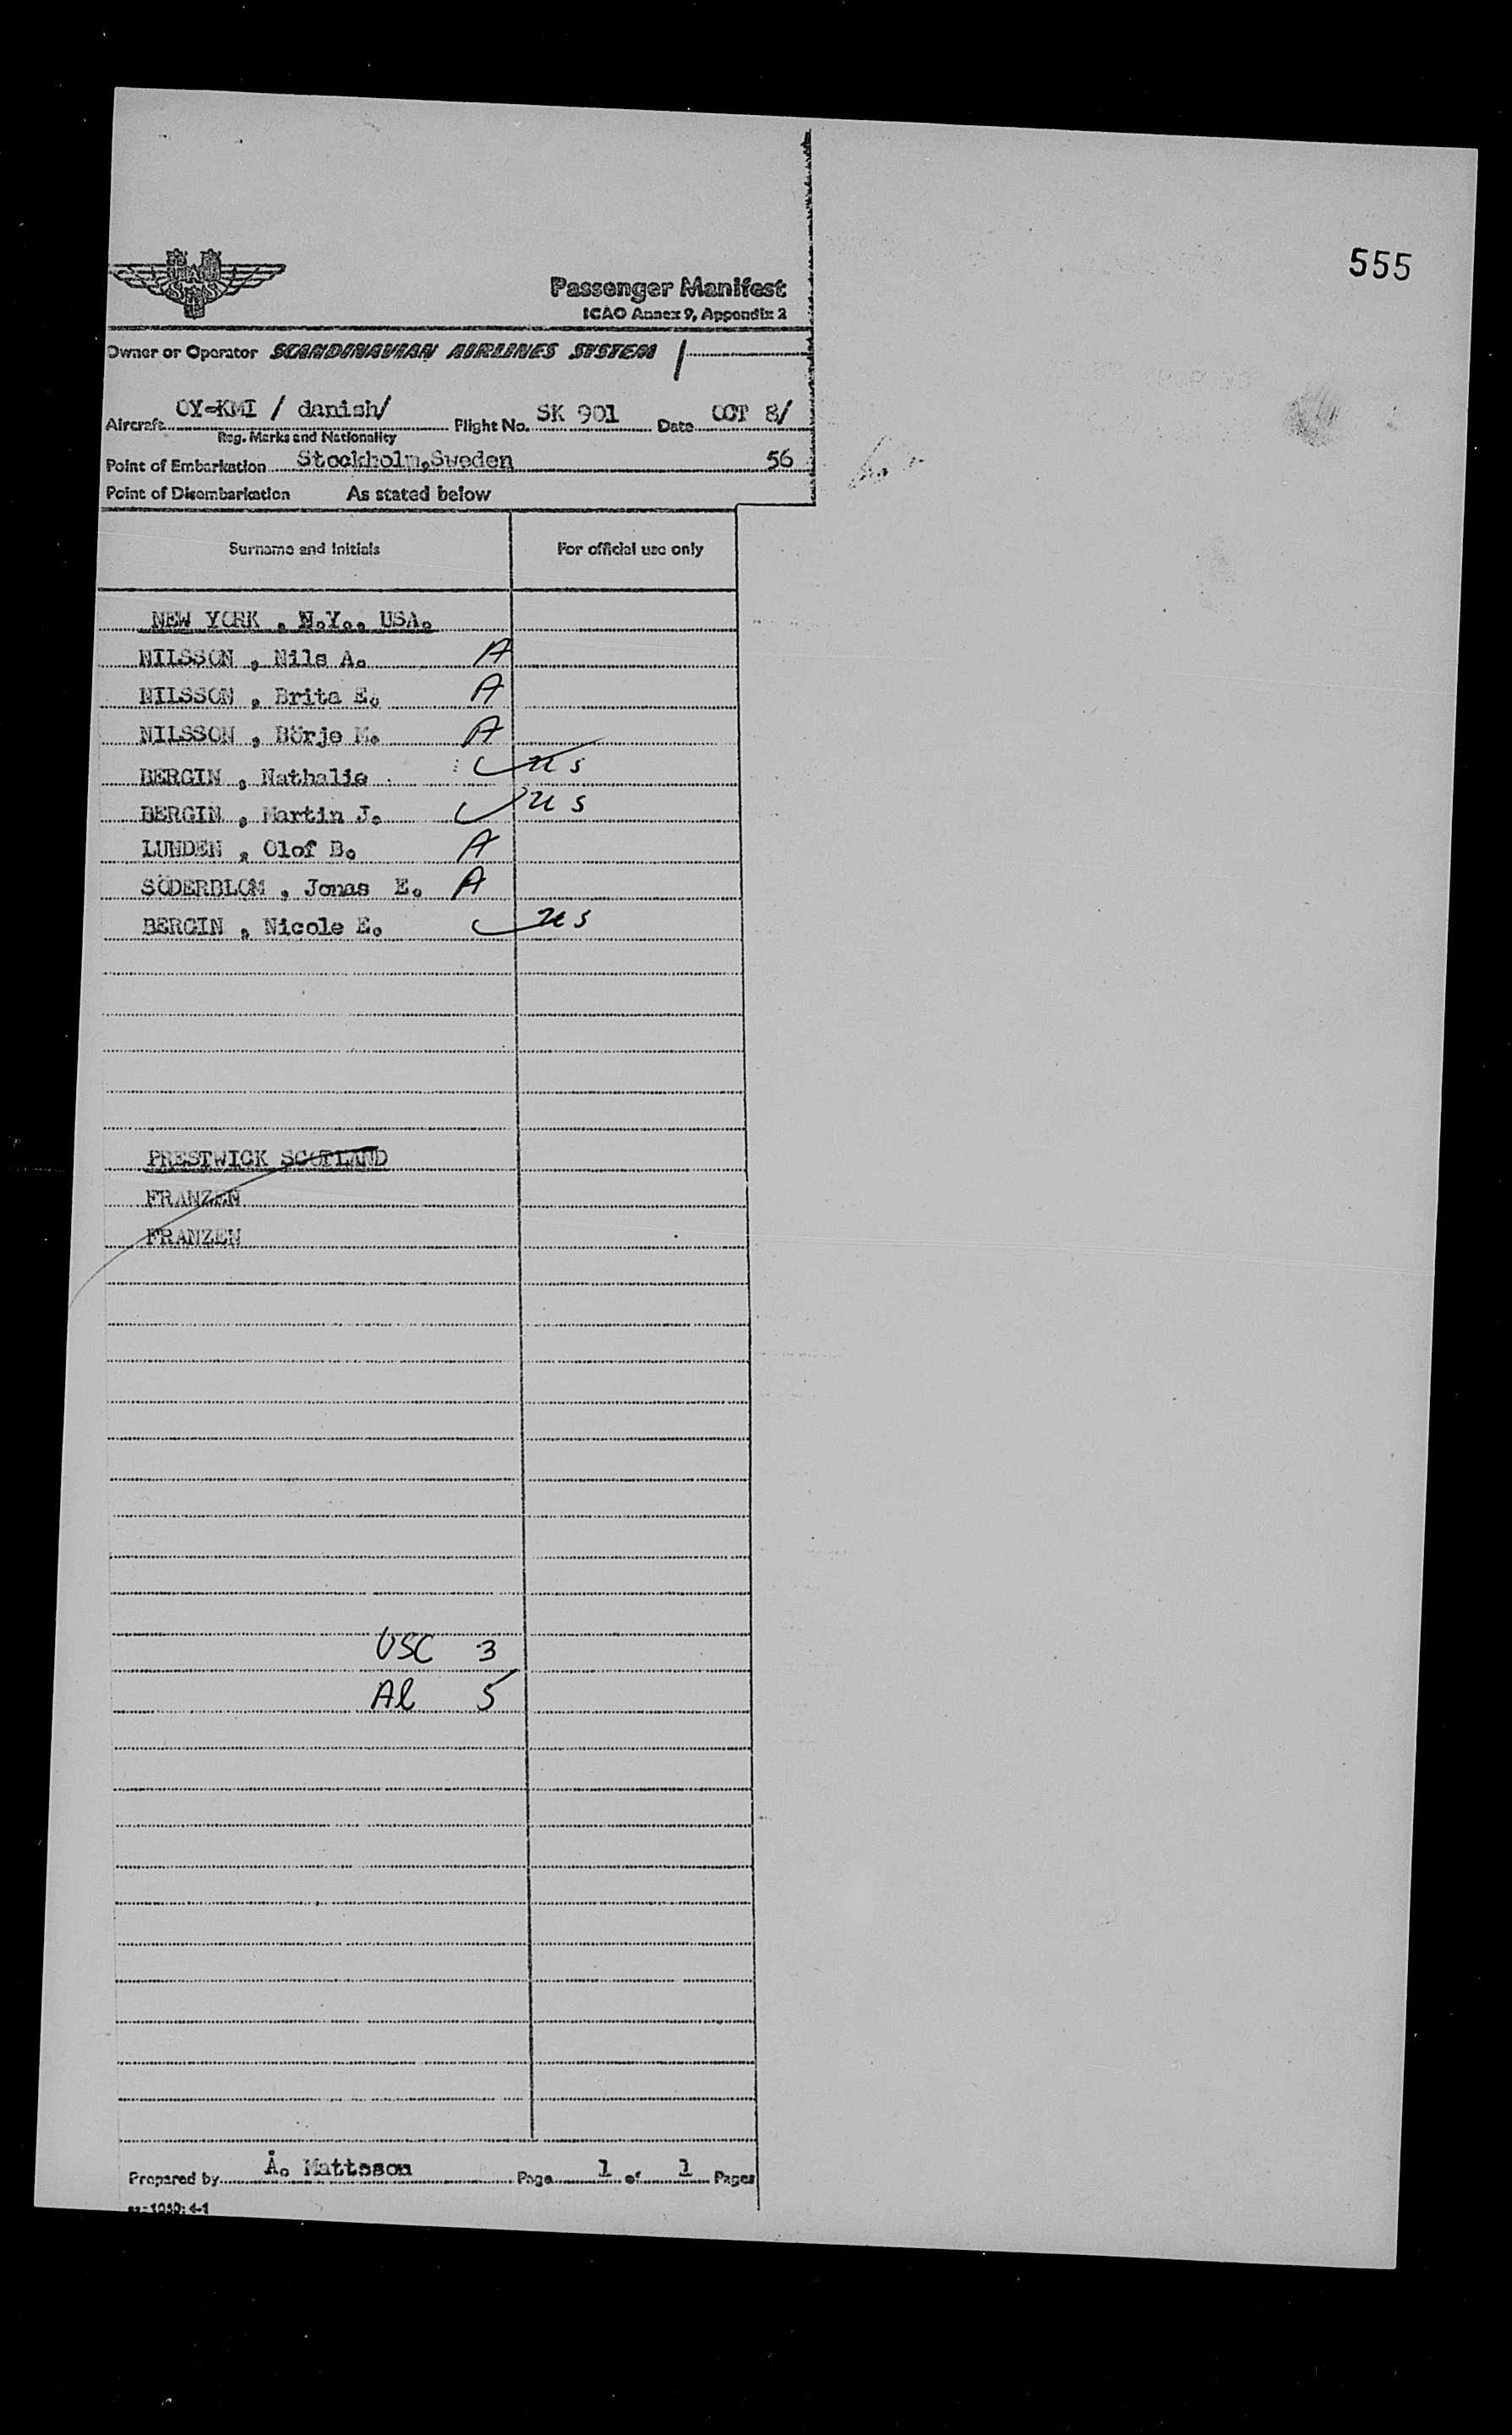 555
SAS
Passenger Manifest
ICAO Annex 9, Appendix 2
Owner or Operator SCANDINAVIAN AIRLINES SYSTEM
Aircraft OY-KMI / danish/ Flight No. SK 901 Date OCT 8/
Reg. Marks and Nationality
Point of Embarkation Stockholm,Sweden 56
Point of Disembarkation As stated below
Surname and Initials For official use only
NEW YORK , N.Y., USA.
NILSSON , Nils A. A
NILSSON , Brita E. A
NILSSON , Börje M. A
BERGIN , Nathalie us
BERGIN , Martin J. us
LUNDEN , Olof B. A
SÖDERBLOM , Jonas E. A
BERGIN , Nicole E. us
PRESTWICK SCOTLAND
FRANZEN
FRANZEN
USC 3
Al 5
Prepared by Å. Mattsson Page 1 of 1 Pages